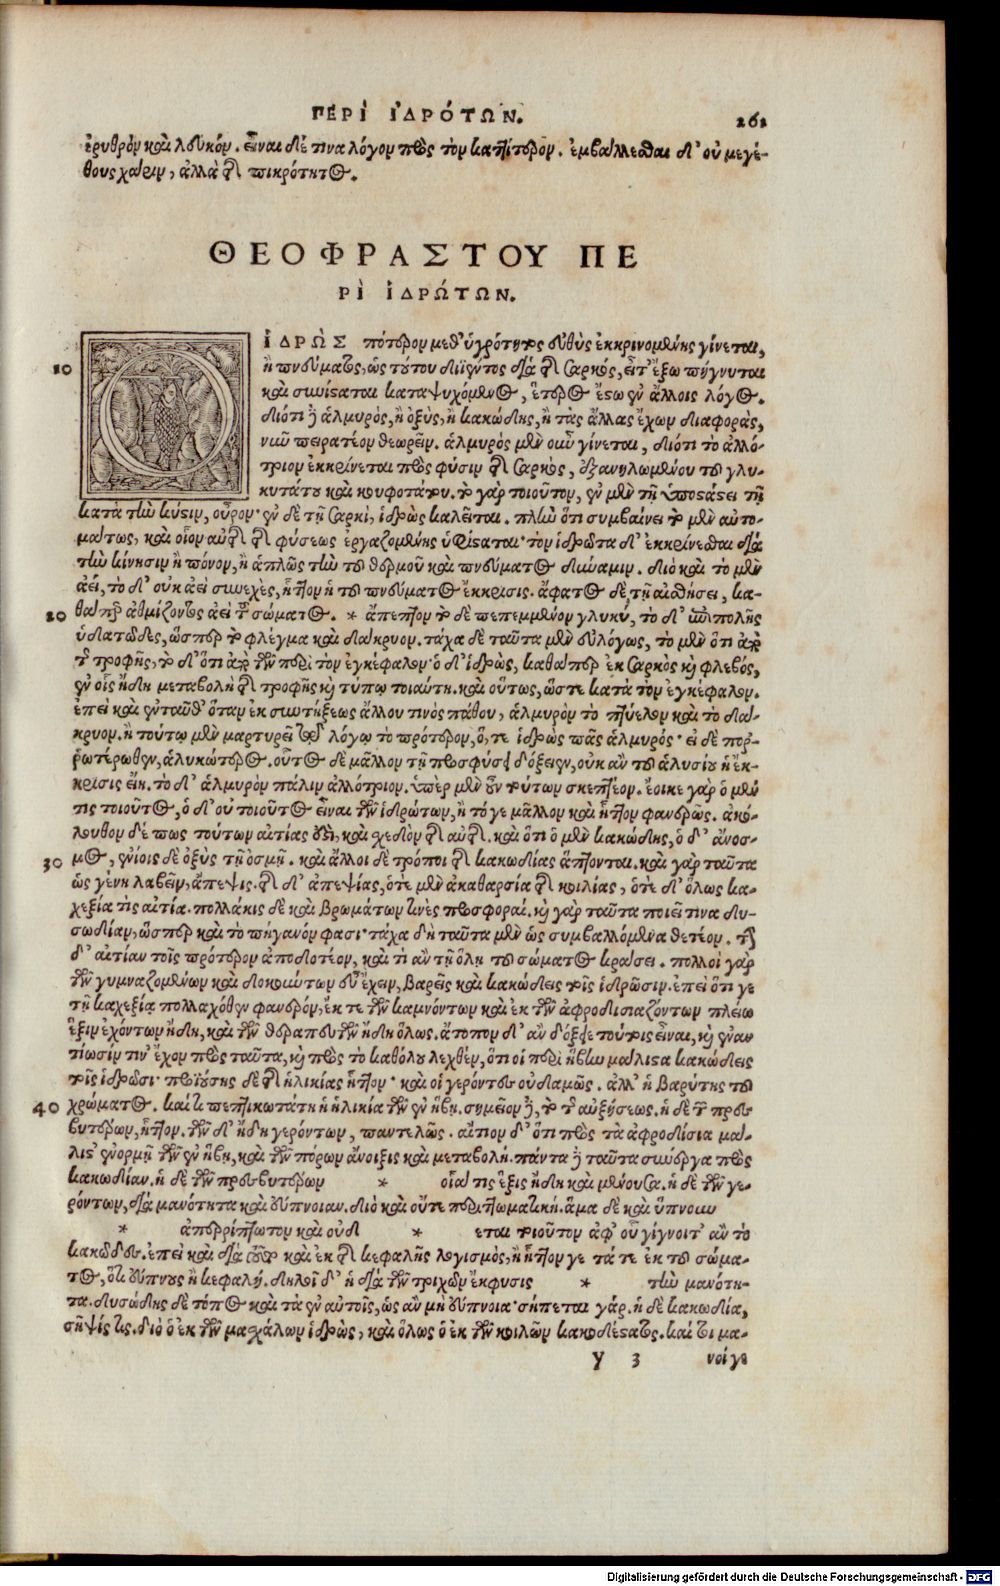 ΠΕΡΙ ἹΔΡΌΤΩΝ. 261
ἐρυθρὸν καὶ λευκόν. εἶναι δέ τινα λόγον πρὸς τὸν κασσίτερον. ἐμβάλλεσθαι δ' οὐ μεγέ-
θους χάριν, ἀλλὰ τῆς πικρότητος.
ΘΕΟΦΡΑΣΤΟΥ ΠΕ
ΡῚ ἹΔΡΏΤΩΝ.
ἹΔΡῺΣ πότερον μεθ' ὑγρότητος εὐθὺς ἐκκρινομένης γίνεται,
10 ἢ πνεύματος, ὡς τούτου διϊόντος διὰ τῆς σαρκός, εἶτ' ἔξω πήγνυται
καὶ συνίσταται καταψυχόμενος, ἕτερος ἔστω ἐν ἄλλοις λόγος.
διότι δὲ ἁλμυρὸς, ἢ ὀξὺς, ἢ κακώδης, ἢ τὰς ἄλλας ἔχων διαφορὰς,
νῦν πειρατέον θεωρεῖν. ἁλμυρὸς μὲν οὖν γίνεται, διότι τὸ ἀλλό-
τριον ἐκκρίνεται πρὸς φύσιν τῆς σαρκὸς, ἐξανηλωμένου τοῦ γλυ-
κυτάτου καὶ κουφοτάτου. τὸ γὰρ τοιοῦτον, ἐν μὲν τῇ ὑποστάσει τῇ
κατὰ τὴν κύστιν, οὖρον· ἐν δὲ τῇ σαρκὶ, ἱδρὼς καλεῖται. πλὴν ὅτι συμβαίνει τὸ μὲν αὐτο-
μάτως, καὶ οἷον αὐτῆς τῆς φύσεως ἐργαζομένης ὑφίσταται· τὸν ἱδρῶτα δ' ἐκκρίνεσθαι διὰ
τὴν κίνησιν ἢ πόνον, ἢ ἁπλῶς τὴν τοῦ θερμοῦ καὶ πνεύματος δύναμιν. διὸ καὶ τὸ μὲν
ἀεί, τὸ δ' οὐκ ἀεὶ συνεχὲς, ἧττον ἢ τοῦ πνεύματος ἔκκρισις. ἄφατος δὲ τῇ αἰσθήσει, κα-
20 θάπερ ἀθμίζοντος ἀεὶ τοῦ σώματος. * ἄπεπτον τὸ δὲ πεπεμμένον γλυκύ, τὸ δ' ἐπιπολῆς
ὑδατῶδες, ὥσπερ τὸ φλέγμα καὶ δάκρυον. τάχα δὲ ταῦτα μὲν εὐλόγως, τὸ μὲν ὅτι ἀπὸ
τῆς τροφῆς, τὸ δ' ὅτι ἀπὸ τῶν περὶ τὸν ἐγκέφαλον· ὁ δ' ἱδρὼς, καθάπερ ἐκ σαρκὸς καὶ φλεβός,
ἐν οἷς ἤδη μεταβολὴ τῆς τροφῆς καὶ τύπῳ τοιαύτη. καὶ οὕτως, ὥστε κατὰ τὸν ἐγκέφαλον.
ἐπεὶ καὶ ἐνταῦθ' ὅταν ἐκ συντήξεως ἄλλου τινὸς πάθου, ἁλμυρὸν τὸ πτύελον καὶ τὸ δά-
κρυον. ἢ τούτῳ μὲν μαρτυρεῖ τῷ λόγῳ τὸ πρότερον, ὅ,τε ἱδρὼς πᾶς ἁλμυρός· εἰ δὲ πορ-
ρωτέρωθεν, ἁλυκώτερος. οὗτος δὲ μᾶλλον τῇ προσφύσει δόξειεν, οὐκ ἂν τοῦ ἁλυσίου ἡ ἔκ-
κρισις εἴη. τὸ δ' ἁλμυρὸν πάλιν ἀλλότριον. ὑπὲρ μὲν οὖν τούτων σκεπτέον. ἔοικε γὰρ ὁ μέν
τις τοιοῦτος, ὁ δ' οὐ τοιοῦτος εἶναι τῶν ἱδρώτων, ἢ τό γε μᾶλλον καὶ ἧττον φανερῶς. ἀκό-
λουθον δέ πως τούτων αἰτίας καὶ σχεδὸν τῆς αὐτῆς. καὶ ὅτι ὁ μὲν κακώδης, ὁ δ' ἄνοσ-
30 μος, ἐνίοις δὲ ὀξὺς τῇ ὀσμῇ. καὶ ἄλλοι δὲ τρόποι τῆς κακωδίας ἅπτονται. καὶ γὰρ ταῦτα
ὡς γένη λαβεῖν, ἄπεψις. τῆς δ' ἀπεψίας, ὁτὲ μὲν ἀκαθαρσία τῆς κοιλίας, ὁτὲ δ' ὅλως κα-
χεξία τὶς αἰτία. πολλάκις δὲ καὶ βρωμάτων τινὲς προσφοραί. καὶ γὰρ ταῦτα ποιεῖ τινα δυ-
σωδίαν, ὥσπερ καὶ τὸ πήγανόν φασι· τάχα δὴ ταῦτα μὲν ὡς συμβαλλόμενα θετέον. τὴν
δ' αἰτίαν τοῖς πρότερον ἀποδοτέον, καὶ τὶ ἂν τῇ ὅλῃ τοῦ σώματος κράσει. πολλοὶ γὰρ
τῶν γυμναζομένων καὶ δοκούντων εὖ ἔχειν, βαρεῖς καὶ κακώδεις τοῖς ἱδρῶσιν. ἐπεὶ ὅτι γε
τῇ καχεξίᾳ πολλαχόθεν φανερόν, ἔκ τε τῶν καμνόντων καὶ ἐκ τῶν ἀφροδισιαζόντων πλείω
ἕξιν ἐχόντων ἤδη, καὶ τῶν θεραπευτῶν ἤδη ὅλως. ἄτοπον δ' ἂν δόξειε τούτοις εἶναι, καὶ ἐναν
τίωσίν τιν' ἔχον πρὸς ταῦτα, καὶ πρὸς τὸ καθόλου λεχθέν, ὅτι οἱ περὶ ἥβην μάλιστα κακώδεις
τοῖς ἱδρῶσι· προϊούσης δὲ τῆς ἡλικίας ἧττον· καὶ οἱ γέροντες οὐδαμῶς. ἀλλ' ἡ βαρύτης τοῦ
40 χρώματος. καί τοι πεπτικωτάτη ἡ ἡλικία τῶν ἐν ἥβῃ. σημεῖον δὲ, τὸ τῆς αὐξήσεως. ἡ δὲ τῶν πρεσ
βυτέρων, ἧττον. τῶν δ' ἤδη γερόντων, παντελῶς. αἴτιον δ' ὅτι πρὸς τὰ ἀφροδίσια μά-
λιστ' ἐνορμῇ τῶν ἐν ἥβῃ, καὶ τῶν πόρων ἄνοιξις καὶ μεταβολή. πάντα δὲ ταῦτα συνεργὰ πρὸς
κακωδίαν. ἡ δὲ τῶν πρεσβυτέρων * οἵα τις ἕξις ἤδη καὶ μένουσα. ἡ δὲ τῶν γε-
ρόντων, διὰ μανότητα καὶ εὔπνοιαν. διὸ καὶ οὔτε περιττωματική. ἅμα δὲ καὶ ὕπνου
* ἀπερρίπτωτον καὶ οὐδὲ * εται τοιοῦτον ἀφ' οὗ γίγνοιτ' ἂν τὸ
κακῶδες. ἐπεὶ καὶ διὰ τοῦτο καὶ ἐκ τῆς κεφαλῆς λογισμὸς, ἢ ἧττον γε τά τε ἐκ τοῦ σώμα-
τος, ὅτι εὔπνους ἡ κεφαλή. δηλοῖ δ' ἡ διὰ τῶν τριχῶν ἔκφυσις * τὴν μανότη-
τα. δυσώδης δὲ τόπος καὶ τὰ ἐν αὐτοῖς, ὡς ἂν μὴ εὔπνοια· σήπεται γάρ. ἡ δὲ κακωδία,
σῆψίς τις. διὸ ὁ ἐκ τῶν μασχάλων ἱδρὼς, καὶ ὅλως ὁ ἐκ τῶν κοίλων κακωδέστατος. καί τοι μα-
y 3 νοί γε
Digitalisierung gefördert durch die Deutsche Forschungsgemeinschaft - DFG